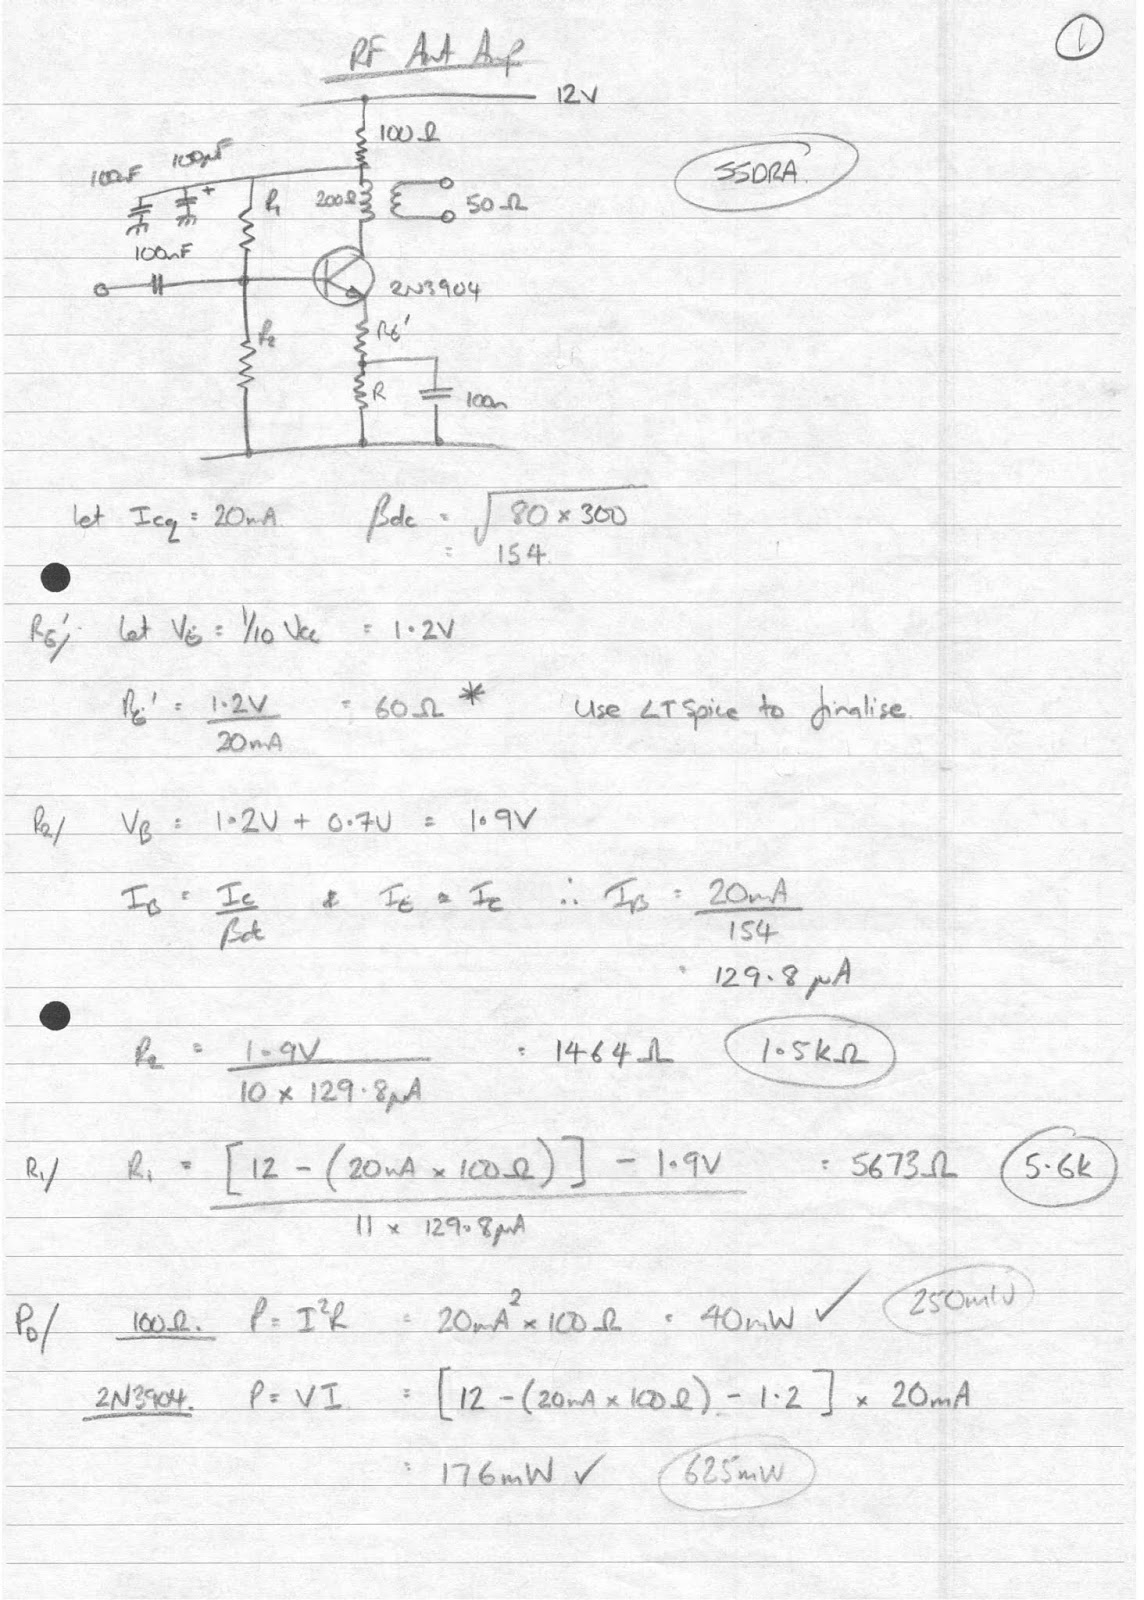 1
RF Ant Amp
12V
100Ω
SSDRA
100nF 100µF
+
R1
200Ω
50Ω
100nF
2N3904
R2
RE'
R
100n
let Icq = 20mA. βdc = √80 × 300
= 154.
RE'/ let VE = 1/10 Vcc = 1.2V
RE' = 1.2V/20mA = 60Ω * Use LTSpice to finalise.
R2/ VB = 1.2V + 0.7V = 1.9V
IB = Ic/βdc & IE ≈ Ic ∴ IB = 20mA/154
= 129.8µA
R2 = 1.9V/10 × 129.8µA = 1464Ω 1.5kΩ
R1/ R1 = [12 - (20mA × 100Ω)] - 1.9V/11 × 129.8µA = 5673Ω 5.6k
PD/ 100Ω. P = I²R = 20mA² × 100Ω = 40mW ✓ 250mW
2N3904. P = VI = [12 - (20mA × 100Ω) - 1.2] × 20mA
= 176mW ✓ 625mW